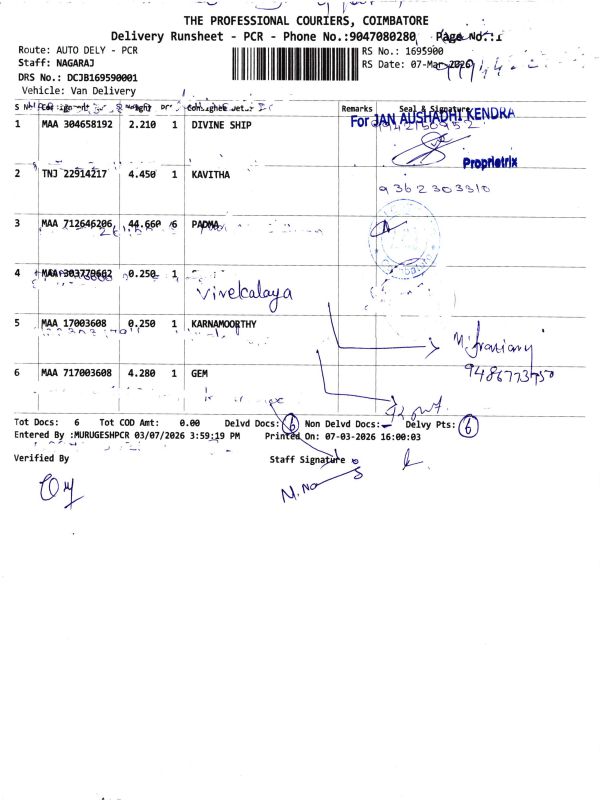 THE PROFESSIONAL COURIERS, COIMBATORE
Delivery Runsheet - PCR - Phone No.:9047080280 Page No.:1
Route: AUTO DELY - PCR
RS No.: 1695900
Staff: NAGARAJ
RS Date: 07-Mar-2026
DRS No.: DCJB169590001
Vehicle: Van Delivery
Remarks Seal & Signature
For JAN AUSHADHI KENDRA
1 MAA 304658192 2.210 1 DIVINE SHIP
Proprietrix
2 TNJ 22914217 4.450 1 KAVITHA
9362303310
3 MAA 712646206 44.660 6 PADMA
4 MAA 303779602 0.250 1
Vivekalaya
5 MAA 17003608 0.250 1 KARNAMOORTHY
9486773750
6 MAA 717003608 4.280 1 GEM
Tot Docs: 6 Tot COD Amt: 0.00 Delvd Docs: 6 Non Delvd Docs: - Delvy Pts: 6
Entered By :MURUGESHPCR 03/07/2026 3:59:19 PM Printed On: 07-03-2026 16:00:03
Verified By Staff Signature